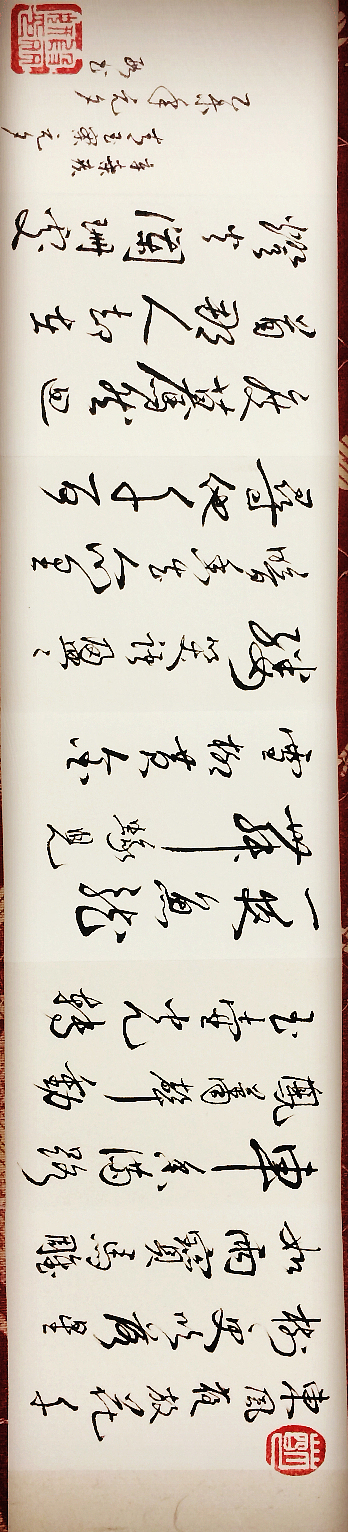 東風夜放花千
樹更吹落星
如雨寶馬雕
車香滿路
鳳簫聲動
玉壺光轉
一夜魚龍
舞蛾兒
雪柳黃金
縷笑語盈〻
暗香去众里
尋他千百
度驀然回
首那人却在
燈火闌珊處
辛棄疾
青玉案元夕
乙未年元夕
書